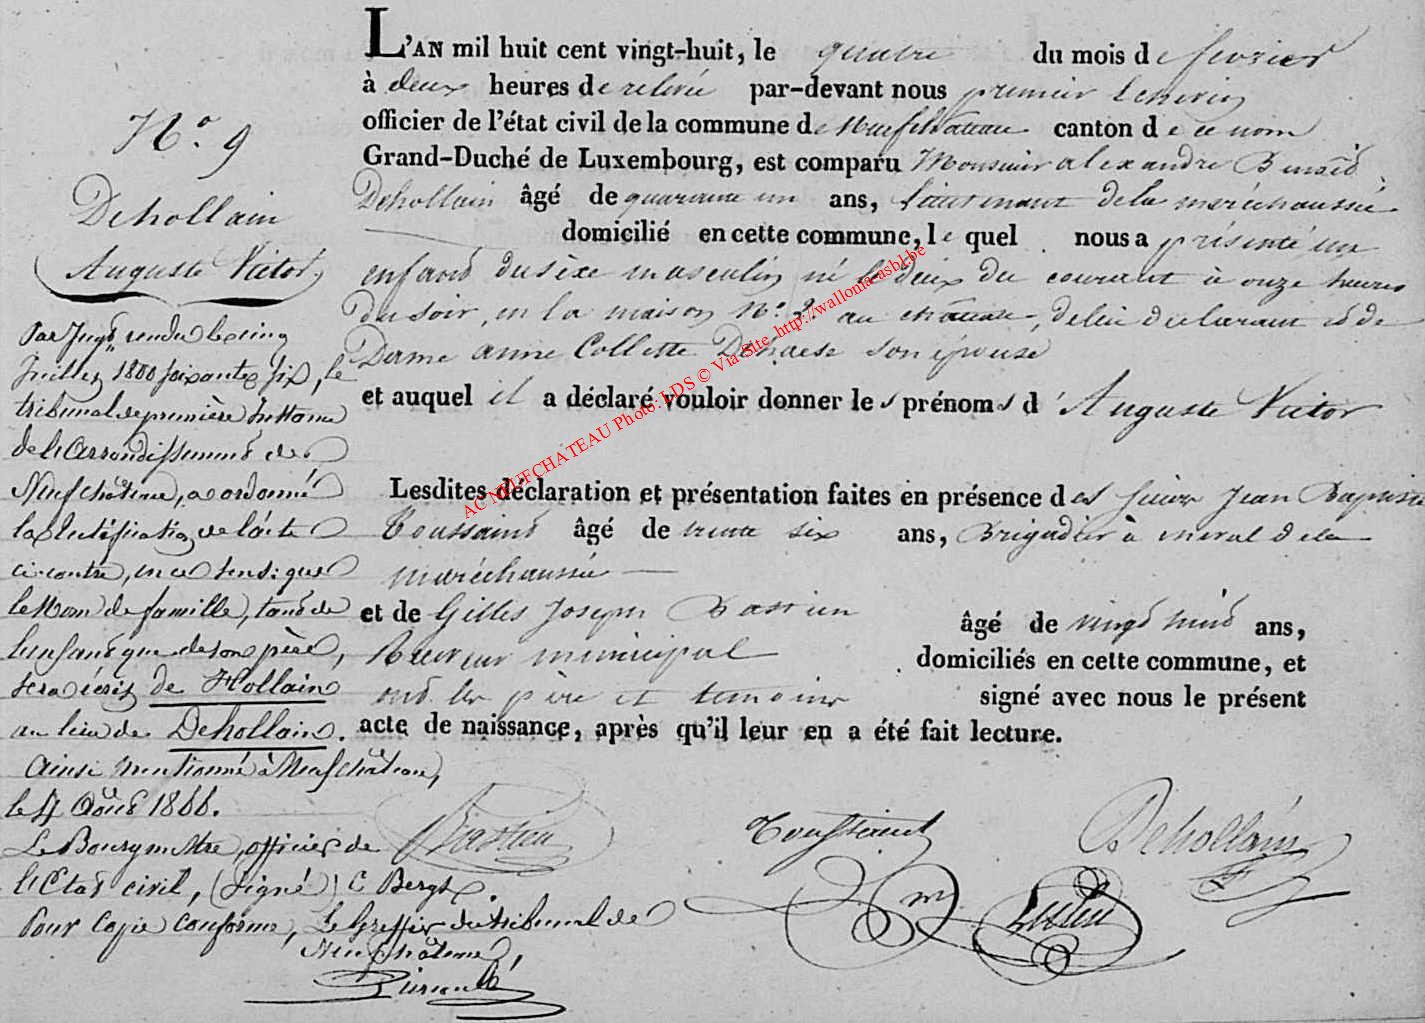 N° 9
Dehollain
Auguste Victor
Par Jugt rendu le cinq
Juillet 1800 soixante six, le
tribunal de première Instance
de l'Arrondissement de
Neufchâteau, a ordonné
la Rectification de l'acte
ci-contre, en ce sens: que
le Nom de famille, tant de
l'enfant que de son père,
sera écrit de Hollain
au lieu de Dehollain.
Ainsi mentionné à Neufchâteau,
le 4 Août 1866.
Le Bourgmestre, officier de
l'Etat civil, (signé) C Bergh.
Pour copie conforme, Le Greffier du tribunal de
Neufchâteau,
L'AN mil huit cent vingt-huit, le quatre du mois de fevrier
à deux heures de relevée par-devant nous premier Echevin
officier de l'état civil de la commune de Neufchateau canton de ce nom
Grand-Duché de Luxembourg, est comparu Monsieur alexandre
Dehollain âgé de quarante un ans, Lieutenant de la maréchaussée
domicilié en cette commune, lequel nous a présenté un
enfant du sexe masculin né le deux du courant à onze heures
du soir, en la maison N° 2 au château, de lui déclarant et de
Dame anne Collette son épouse
et auquel il a déclaré vouloir donner les prénoms d'Auguste Victor
Lesdites déclaration et présentation faites en présence des sieurs Jean Baptiste
Toussaint âgé de trente six ans, Brigadier à cheval de la
maréchaussée
et de Gilles Joseph Bastien âgé de vingt huit ans,
Receveur municipal domiciliés en cette commune, et
ont les père et temoins signé avec nous le présent
acte de naissance, après qu'il leur en a été fait lecture.
Bastien Toussaint Dehollain
AC NEUFCHATEAU Photo: LDS © Via Site http://wallonia-asbl.be